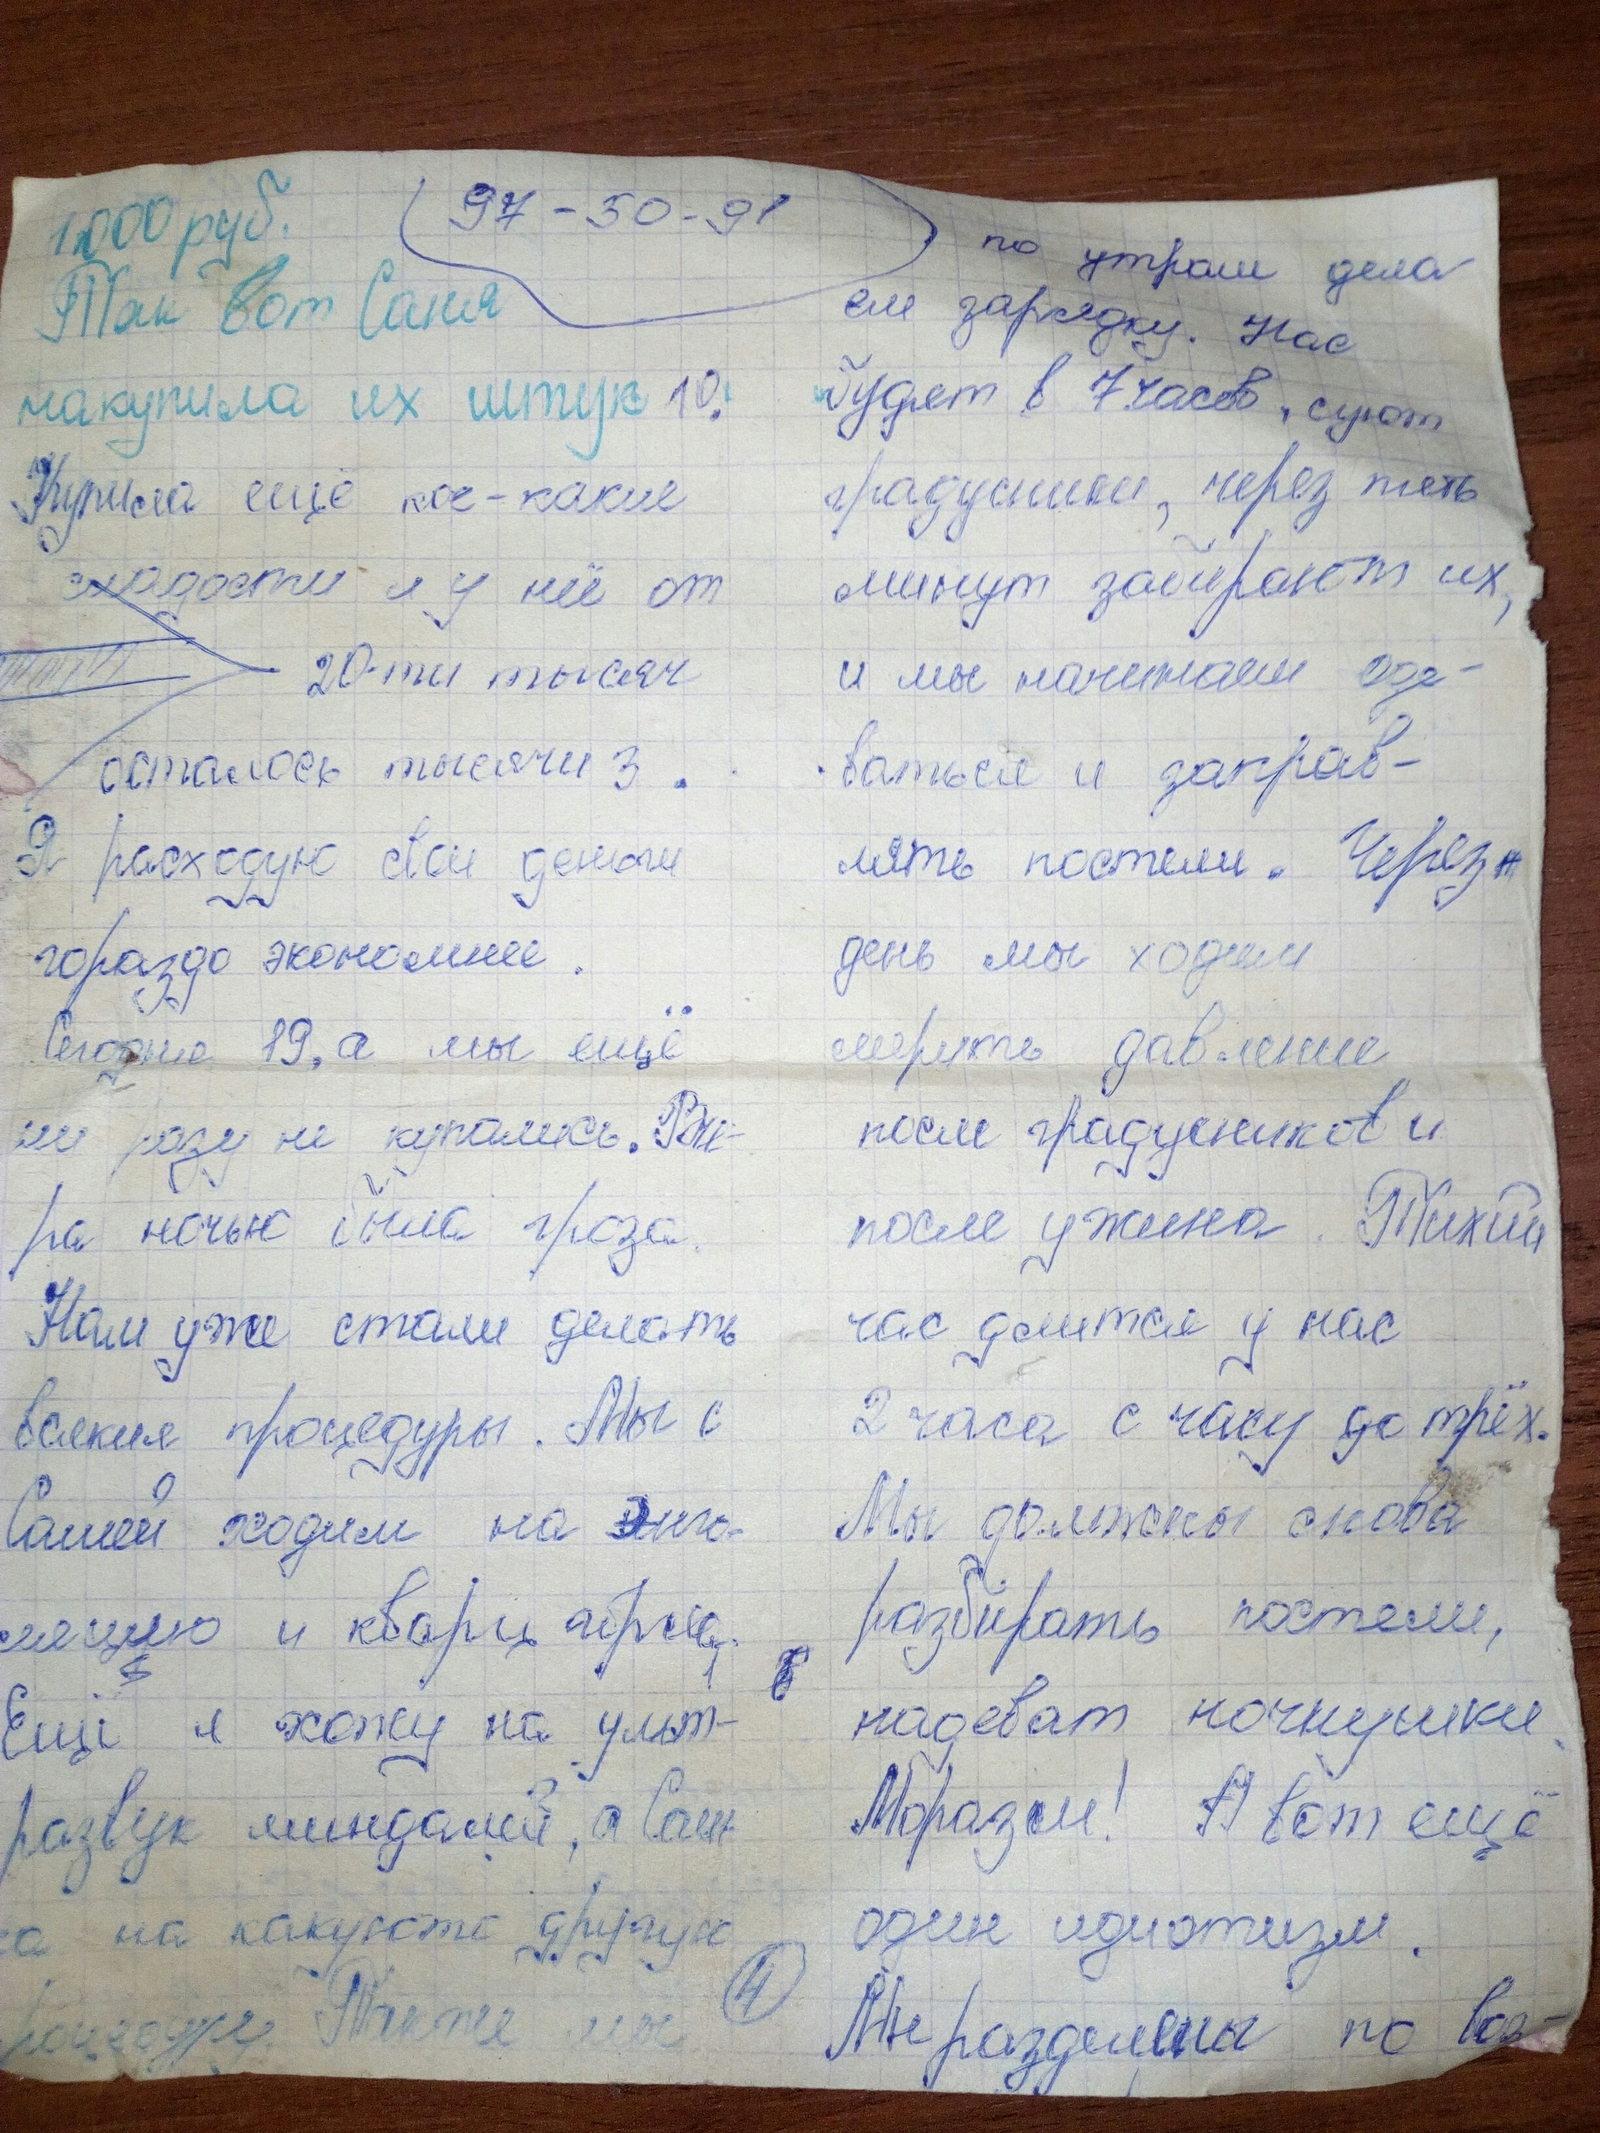 1.000 руб.
97-50-91
Так вот Саня
накупила их штук 10.
Купила ещё кое-какие
сладости и у неё от
20-ти тысяч
осталось тысячи 3.
Я расходую свои деньги
гораздо экономнее.
Сегодня 19, а мы ещё
ни разу не купались. Вче-
ра ночью была гроза.
Нам уже стали делать
всякие процедуры. Мы с
Сашей ходим на инга-
ляцию и кварц
Ещё я хожу на ульт-
развук миндалей, а Саш
ка на какуюто другую
процедуру. Также мы
4
по утрам дела
ем зарядку. Нас
будят в 7 часов, суют
градусники, через пять
минут забирают их,
и мы начинаем оде-
ваться и заправ-
лять постели. Через
день мы ходим
мерить давление
после градусников и
после ужина. Тихий
час длится у нас
2 часа с часу до трёх.
Мы должны снова
разбирать постели,
надеват ночнушки.
Моразм! А вот ещё
один идиотизм.
Мы разделены по воз-